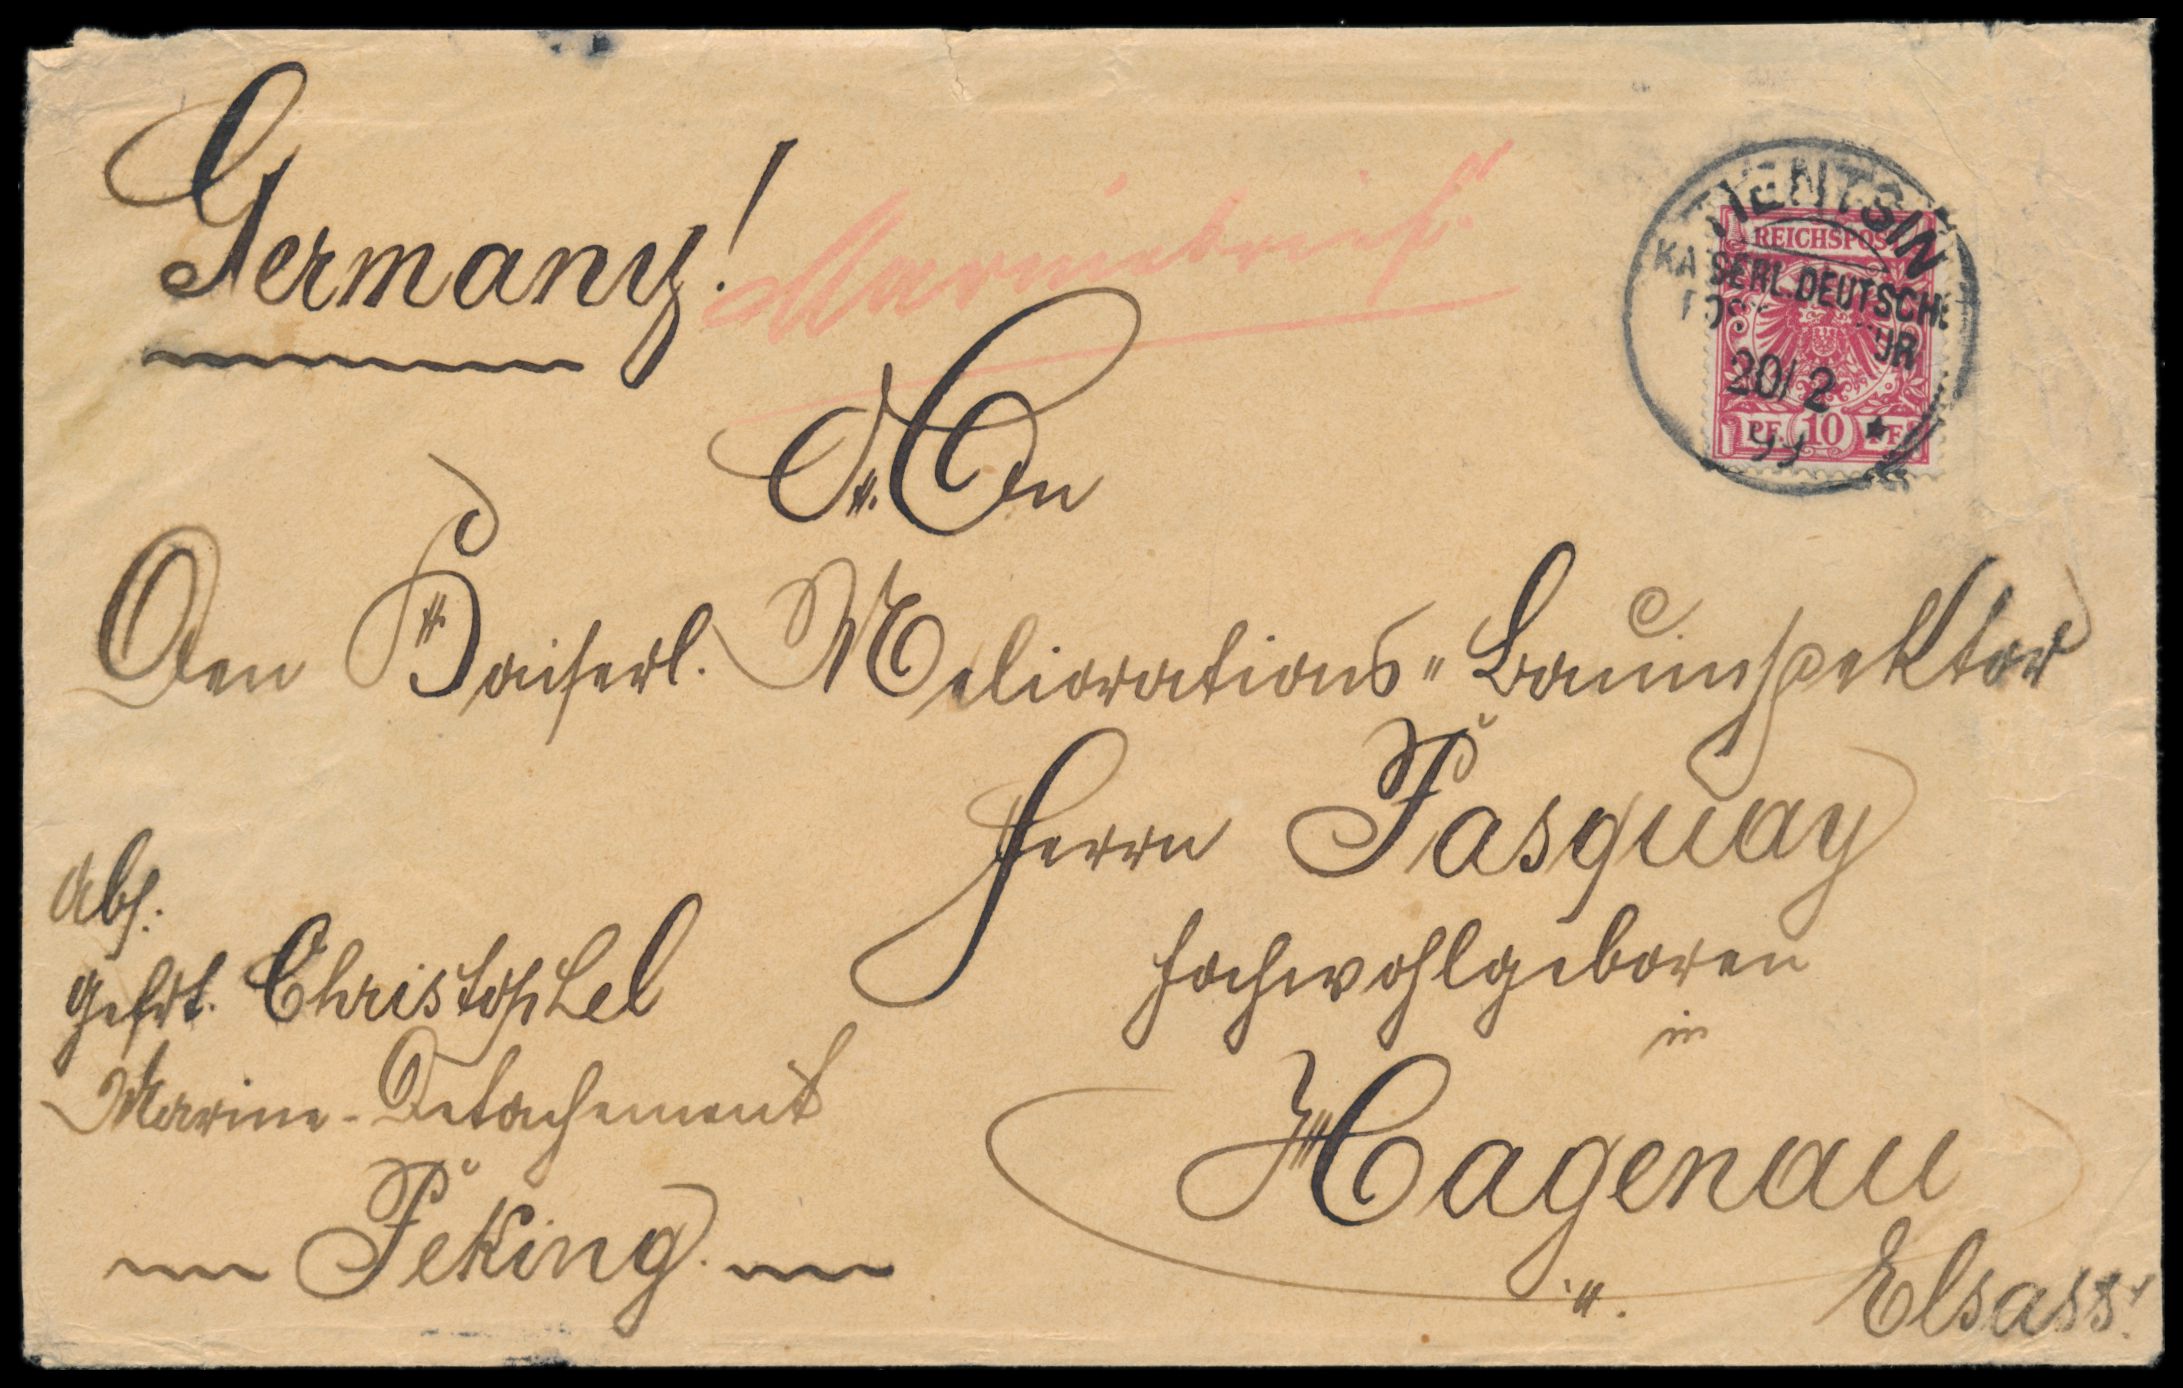 Germany!
Marinebrief
TIENTSIN
KAISERL. DEUTSCHE
20/2
99
REICHSPOST
PF. 10 PF.
An
Den Kaiserl. Meliorations-Bauinspektor
Herrn Pasquay
Hochwohlgeboren
in
Hagenau
Elsass.
Abs:
Gefrt. Christophel
Marine-Detachement
Peking.